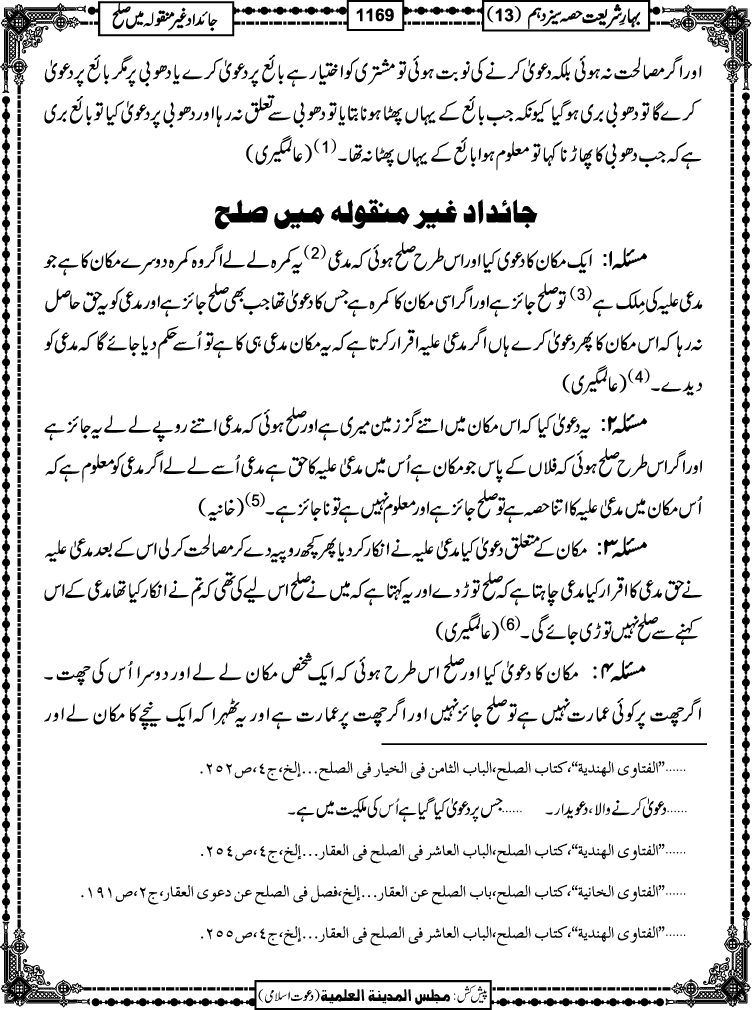 بہارِ شریعت حصہ سیزدہم (13)
1169
جائداد غیر منقولہ میں صلح
اور اگر مصالحت نہ ہوئی بلکہ دعویٰ کرنے کی نوبت ہوئی تو مشتری کو اختیار ہے بائع پر دعویٰ کرے یا دھوبی پر مگر بائع پر دعویٰ
کرے گا تو دھوبی بری ہوگیا کیونکہ جب بائع کے یہاں پھٹا ہونا بتایا تو دھوبی سے تعلق نہ رہا اور دھوبی پر دعویٰ کیا تو بائع بری
ہے کہ جب دھوبی کا پھاڑنا کہا تو معلوم ہوا بائع کے یہاں پھٹا نہ تھا۔(1)(عالمگیری)
جائداد غیر منقولہ میں صلح
مسئلہ۱: ایک مکان کا دعویٰ کیا اور اس طرح صلح ہوئی کہ مدعی(2) یہ کمرہ لے لے اگر وہ کمرہ دوسرے مکان کا ہے جو
مدعی علیہ کی مِلک ہے(3) تو صلح جائز ہے اور اگر اسی مکان کا کمرہ ہے جس کا دعویٰ تھا جب بھی صلح جائز ہے اور مدعی کو یہ حق حاصل
نہ رہا کہ اس مکان کا پھر دعویٰ کرے ہاں اگر مدعیٰ علیہ اقرار کرتا ہے کہ یہ مکان مدعی ہی کا ہے تو اُسے حکم دیا جائے گا کہ مدعی کو
دیدے۔(4)(عالمگیری)
مسئلہ۲: یہ دعویٰ کیا کہ اس مکان میں اتنے گز زمین میری ہے اور صلح ہوئی کہ مدعی اتنے روپے لے لے یہ جائز ہے
اور اگر اس طرح صلح ہوئی کہ فلاں کے پاس جو مکان ہے اُس میں مدعیٰ علیہ کا حق ہے مدعی اُسے لے لے اگر مدعی کو معلوم ہے کہ
اُس مکان میں مدعیٰ علیہ کا اتنا حصہ ہے تو صلح جائز ہے اور معلوم نہیں ہے تو ناجائز ہے۔(5)(خانیہ)
مسئلہ۳: مکان کے متعلق دعویٰ کیا مدعیٰ علیہ نے انکار کردیا پھر کچھ روپیہ دے کر مصالحت کرلی اس کے بعد مدعیٰ علیہ
نے حق مدعی کا اقرار کیا مدعی چاہتا ہے کہ صلح توڑ دے اور یہ کہتا ہے کہ میں نے صلح اس لیے کی تھی کہ تم نے انکار کیا تھا مدعی کے اس
کہنے سے صلح نہیں توڑی جائے گی۔(6)(عالمگیری)
مسئلہ۴: مکان کا دعویٰ کیا اور صلح اس طرح ہوئی کہ ایک شخص مکان لے لے اور دوسرا اُس کی چھت۔
اگر چھت پر کوئی عمارت نہیں ہے تو صلح جائز نہیں اور اگر چھت پر عمارت ہے اور یہ ٹھہرا کہ ایک نیچے کا مکان لے اور
......”الفتاوی الھندیة“،کتاب الصلح،الباب الثامن فی الخیار فی الصلح...إلخ،ج٤،ص٢٥٢.
......دعویٰ کرنے والا،دعویدار۔ ......جس پر دعویٰ کیا گیا ہے اُس کی ملکیت میں ہے۔
......”الفتاوی الھندیة“،کتاب الصلح،الباب العاشر فی الصلح فی العقار...إلخ،ج٤،ص٢٥٤.
......”الفتاوی الخانیة“،کتاب الصلح،باب الصلح عن العقار...إلخ،فصل فی الصلح عن دعوی العقار،ج٢،ص١٩١.
......”الفتاوی الھندیة“،کتاب الصلح،الباب العاشر فی الصلح فی العقار...إلخ،ج٤،ص٢٥٥.
پیش کش: مجلس المدینة العلمیة(دعوت اسلامی)